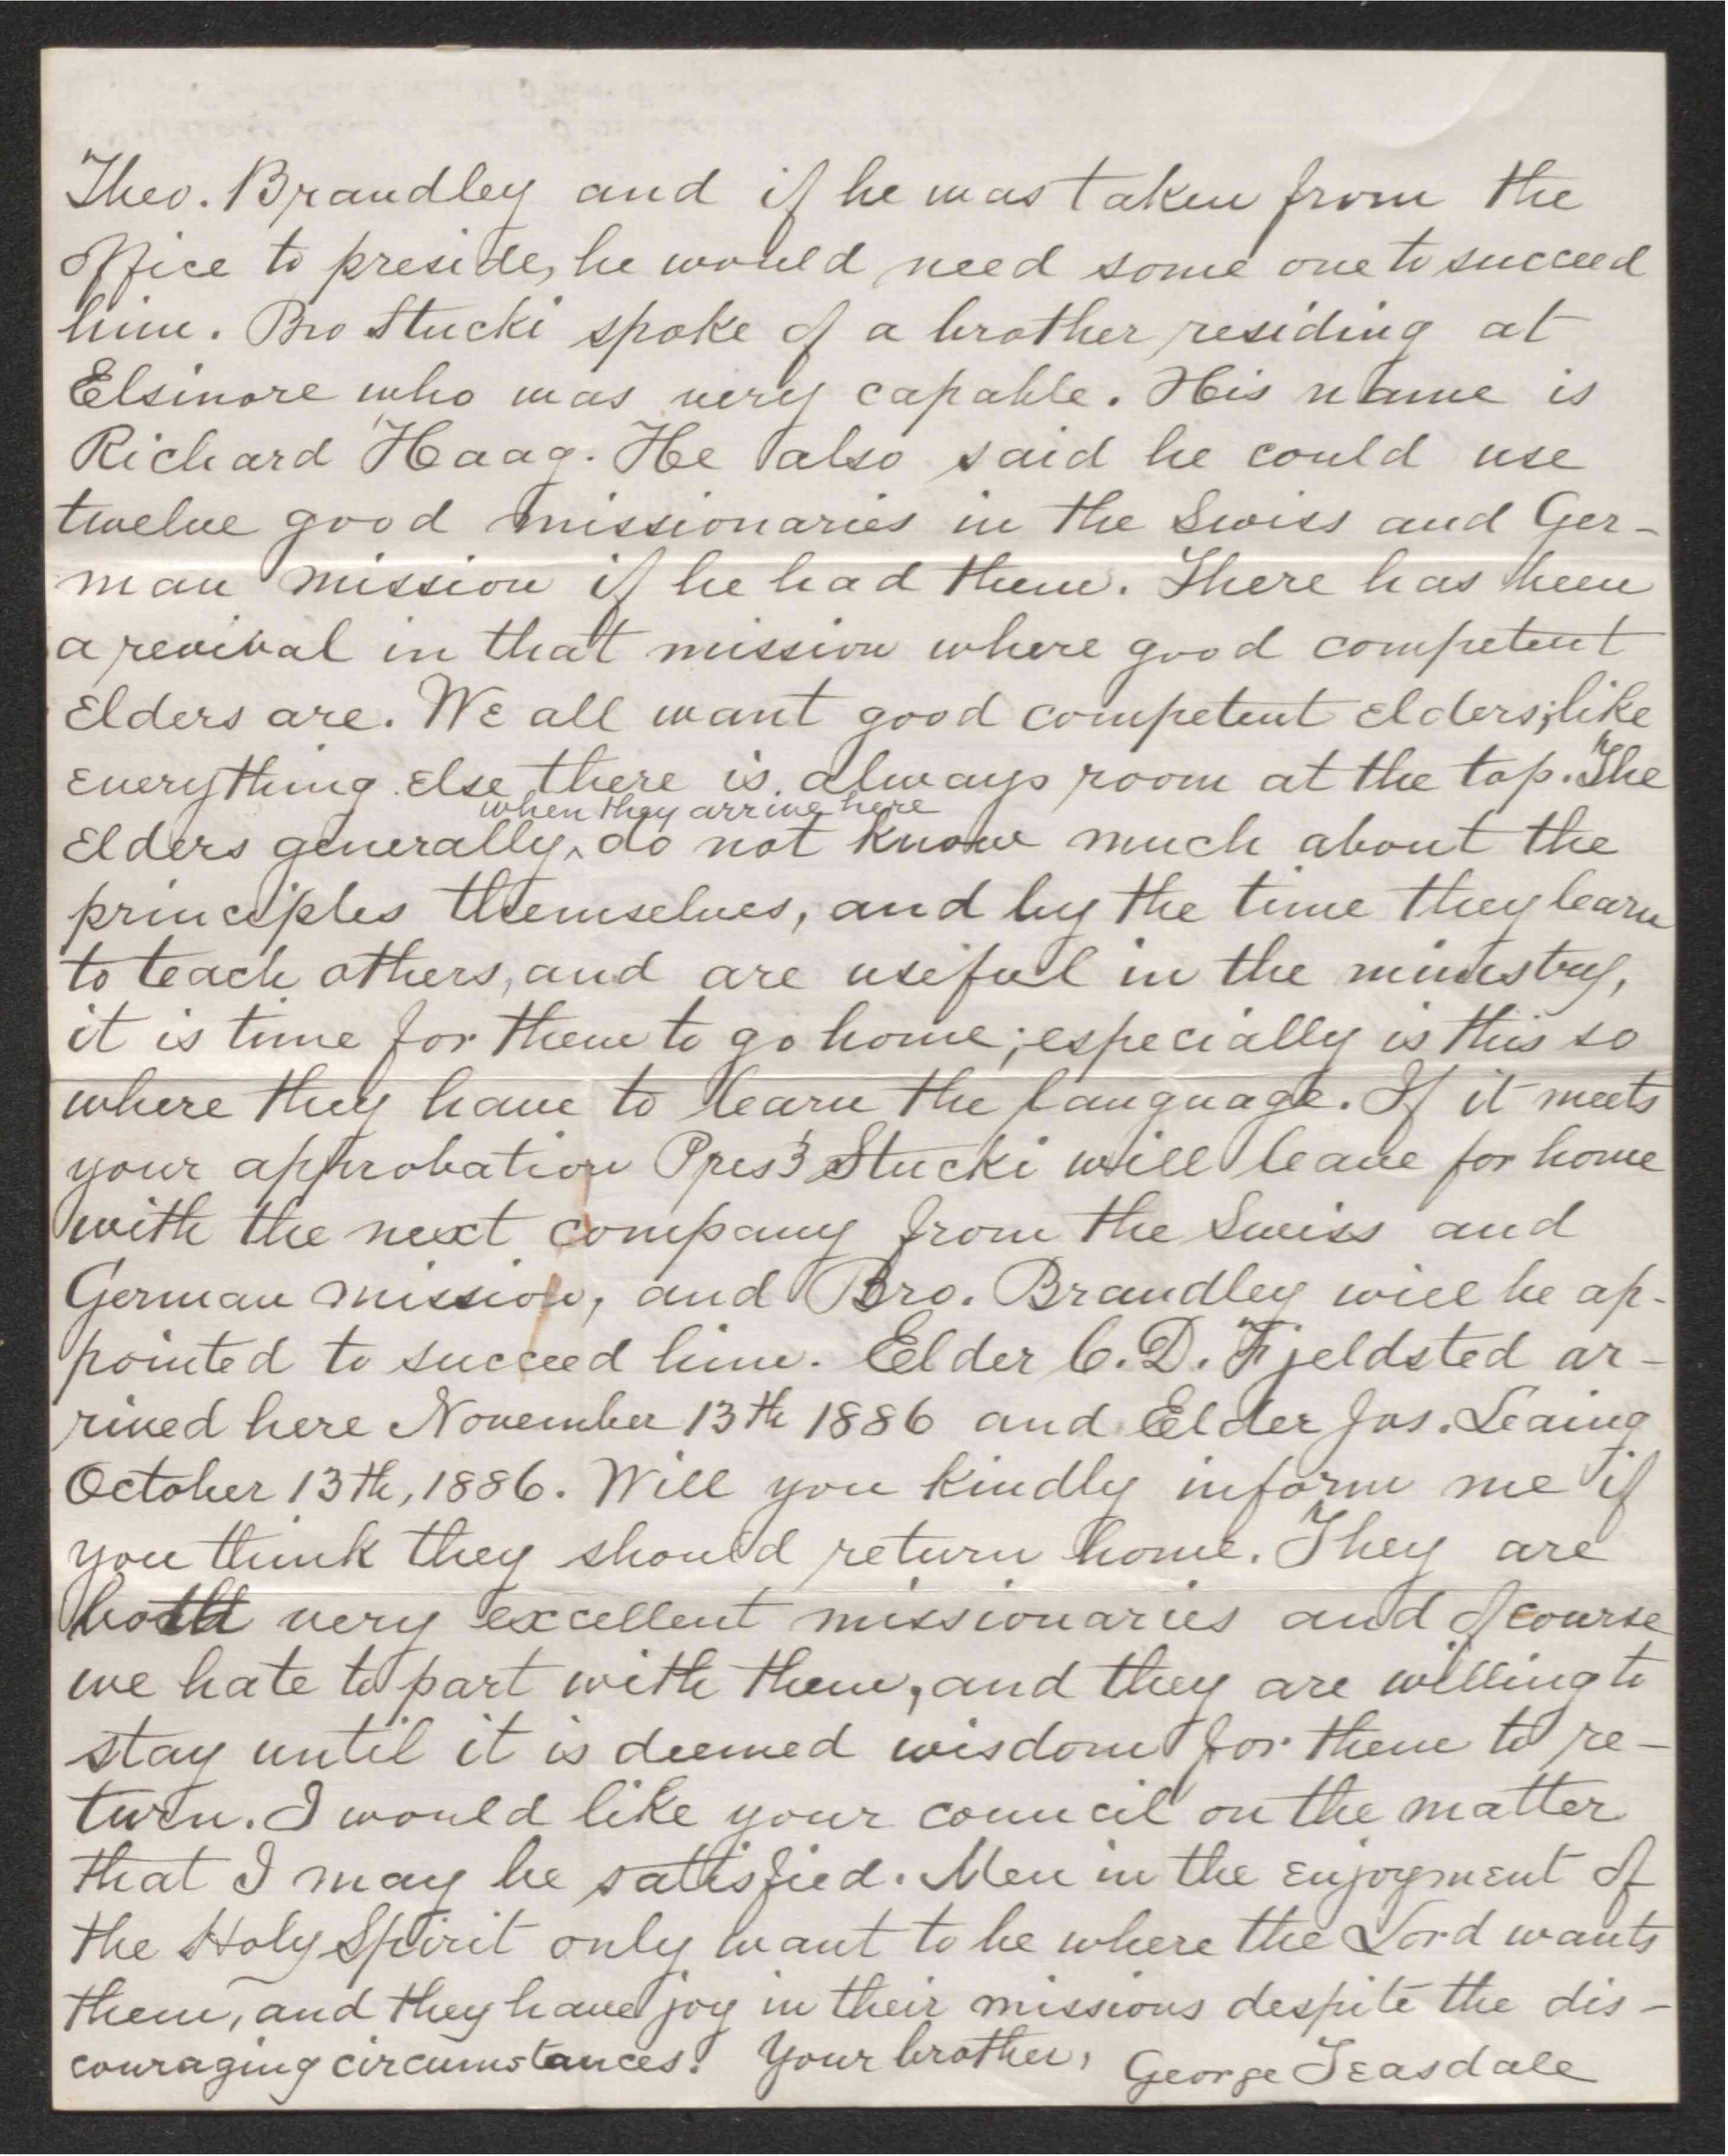 Theo. Brandley and if he was taken from the
office to preside, he would need some one to succeed
him. Bro Stucki spoke of a brother residing at
Elsinore who was very capable. His name is
Richard Haag. He also said he could use
twelve good missionaries in the Swiss and Ger-
man mission if he had them. There has been
a revival in that mission where good competent
Elders are. We all want good competent elders; like
everything else there is always room at the top. The
when they arrive here
Elders generally ^ do not know much about the
principles themselves, and by the time they learn
to teach others, and are useful in the ministry,
it is time for them to go home; especially is this so
where they have to learn the language. If it meets
your approbation Prest Stucki will leave for home
with the next company from the Swiss and
German mission, and Bro. Brandley will be ap-
pointed to succeed him. Elder C. D. Fjeldsted ar-
rived here November 13th 1886 and Elder Jas. Leaing
October 13th, 1886. Will you kindly inform me if
you think they should return home. They are
both very excellent missionaries and of course
we hate to part with them, and they are willing to
stay until it is deemed wisdom for them to re-
turn. I would like your council on the matter
that I may be satisfied. Men in the enjoyment of
the Holy Spirit only want to be where the Lord wants
them, and they have joy in their missions despite the dis-
couraging circumstances. Your brother, George Teasdale